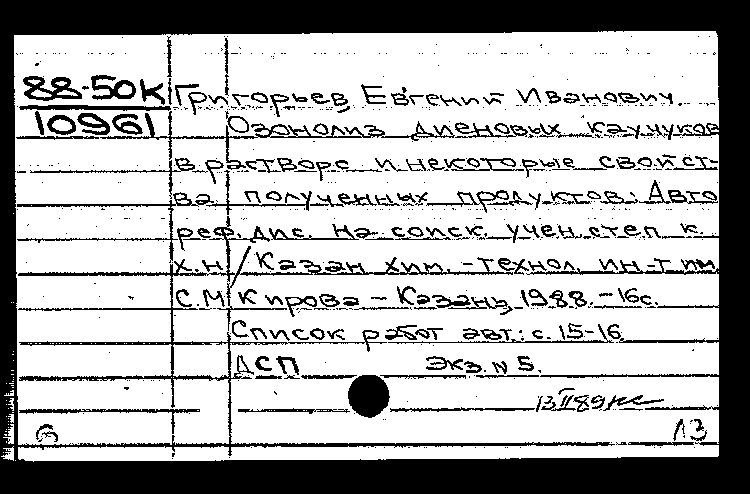 88-50К Григорьев Евгений Иванович.
10961 Озонолиз диеновых каучуков
в растворе и некоторые свойст-
ва полученных продуктов: Авто
реф. дис. на соиск. учен. степ к.
х.н / Казан хим. - технол. ин-т им.
С.М Кирова - Казань, 1988. - 16с.
Список работ авт.: с. 15-16
ДСП Экз. N 5.
13 II 89